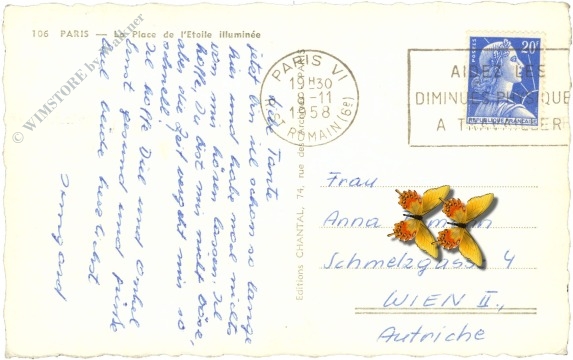 106 PARIS – La Place de l'Etoile illuminée
Liebe Tante
jetzt bin ich schon so lange
hier und habe noch nichts
von mir hören lassen. Ich
hoffe, Du bist mir nicht böse,
aber die Zeit vergeht mir so
schnell!
Ich hoffe Dich und Onkel
Ernst gesund und grüße
Euch beide herzlichst
Irmgard
Editions CHANTAL, 74, rue des Archives PARIS
PARIS VI
19H30
8-11
1958
R. ST ROMAIN (6e)
AIDEZ LES
DIMINUES PHYSIQUES
A TRAVAILLER
POSTES
20F
REPUBLIQUE FRANÇAISE
Frau
Anna
Schmelzgasse 4
WIEN II.,
Autriche
© WIMSTORE by Wallner